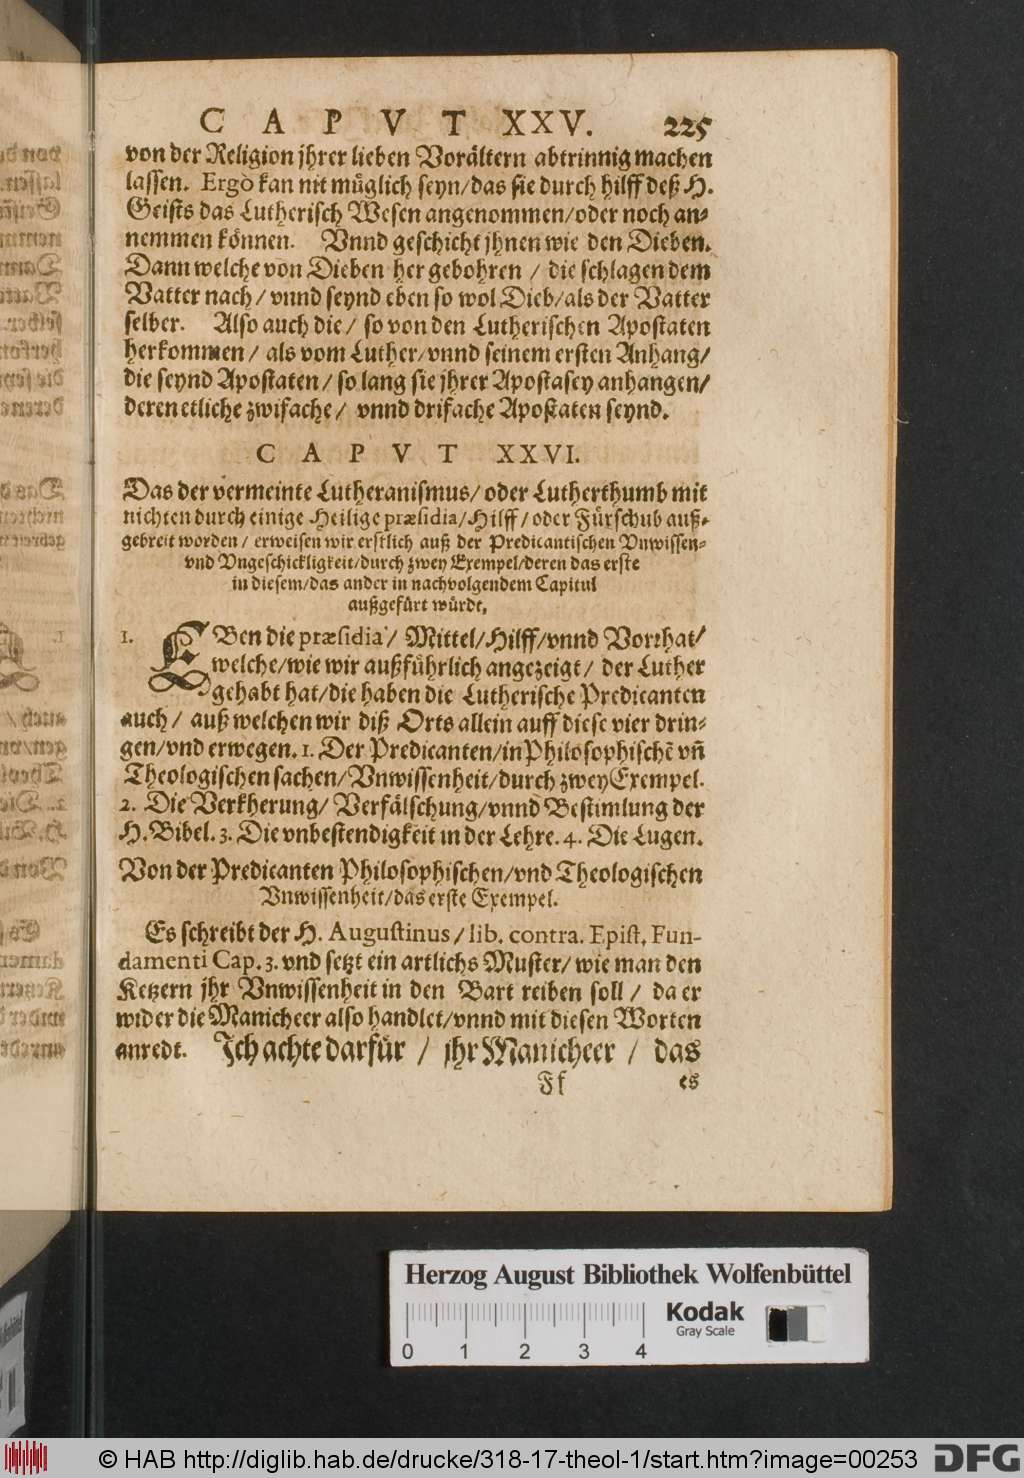 CAPVT XXV. 225
von der Religion jhrer lieben Vorältern abtrinnig machen
lassen. Ergò kan nit müglich seyn/das sie durch hilff deß H.
Geists das Lutherisch Wesen angenommen/oder noch an-
nemmen können. Vnnd geschicht jhnen wie den Dieben.
Dann welche von Dieben her gebohren / die schlagen dem
Vatter nach/ vnnd seynd eben so wol Dieb/als der Vatter
selber. Also auch die/ so von den Lutherischen Apostaten
herkommen/ als vom Luther/vnnd seinem ersten Anhang/
die seynd Apostaten/ so lang sie jhrer Apostasey anhangen/
deren etliche zwifache/ vnnd drifache Apostaten seynd.
CAPVT XXVI.
Das der vermeinte Lutheranismus/oder Lutherthumb mit
nichten durch einige Heilige præsidia/Hilff/oder Fürschub auß-
gebreit worden / erweisen wir erstlich auß der Predicantischen Vnwissen-
vnd Vngeschickligkeit/durch zwey Exempel/deren das erste
in diesem/das ander in nachvolgendem Capitul
außgefürt würdt,
1. EBen die præsidia/ Mittel/Hilff/vnnd Vorrhat/
welche/wie wir außführlich angezeigt/ der Luther
gehabt hat/die haben die Lutherische Predicanten
auch/ auß welchen wir diß Orts allein auff diese vier drin-
gen/vnd erwegen. 1. Der Predicanten/in Philosophischē vñ
Theologischen sachen/Vnwissenheit/durch zwey Exempel.
2. Die Verkherung/ Verfälschung/vnnd Bestimlung der
H. Bibel. 3. Die vnbestendigkeit in der Lehre. 4. Die Lugen.
Von der Predicanten Philosophischen/vnd Theologischen
Vnwissenheit/das erste Exempel.
Es schreibt der H. Augustinus/lib. contra. Epist. Fun-
damenti Cap. 3. vnd setzt ein artlichs Muster/ wie man den
Ketzern jhr Vnwissenheit in den Bart reiben soll / da er
wider die Manicheer also handlet/vnnd mit diesen Worten
anredt. Ich achte darfür / jhr Manicheer / das
Ff es
Herzog August Bibliothek Wolfenbüttel
Kodak
Gray Scale
0 1 2 3 4
© HAB http://diglib.hab.de/drucke/318-17-theol-1/start.htm?image=00253 DFG